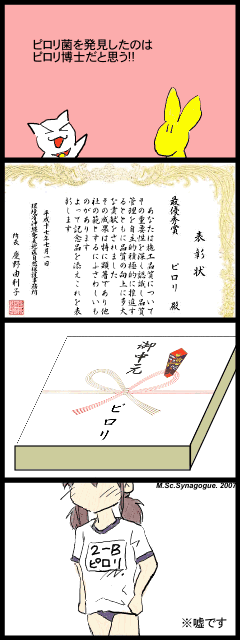 ピロリ菌を発見したのは
ピロリ博士だと思う!!
表彰状
最優秀賞
ピロリ 殿
あなたは施工品質について
その重要性を深く認識し品質
管理を自主的積極的に推進す
るとともに品質の向上に多大
な貢献をされました
その成果は特に顕著であり他
社の範とするにふさわしいも
のがあります
よって記念品を添えこれを表
彰します
平成十七年七月一日
所長 慶野由利子
御中元
ピロリ
M.Sc.Synagogue. 2007
2-B
ピロリ
※嘘です